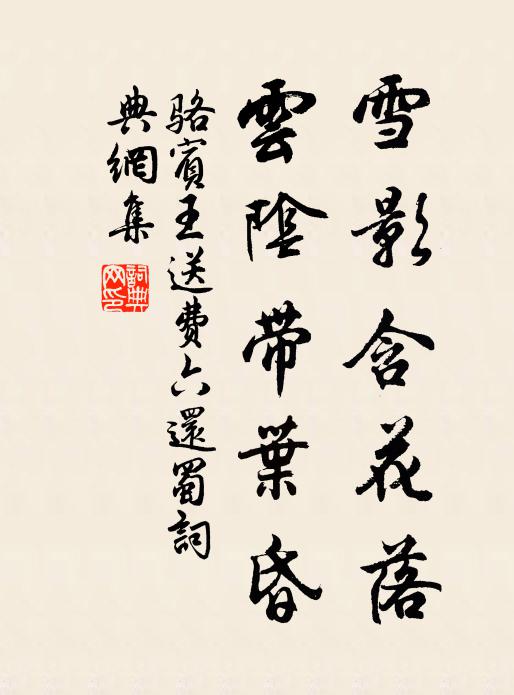 雪影含花落
雲陰帶葉昏
駱賓王送費六還蜀詞
典網集
詞典網印